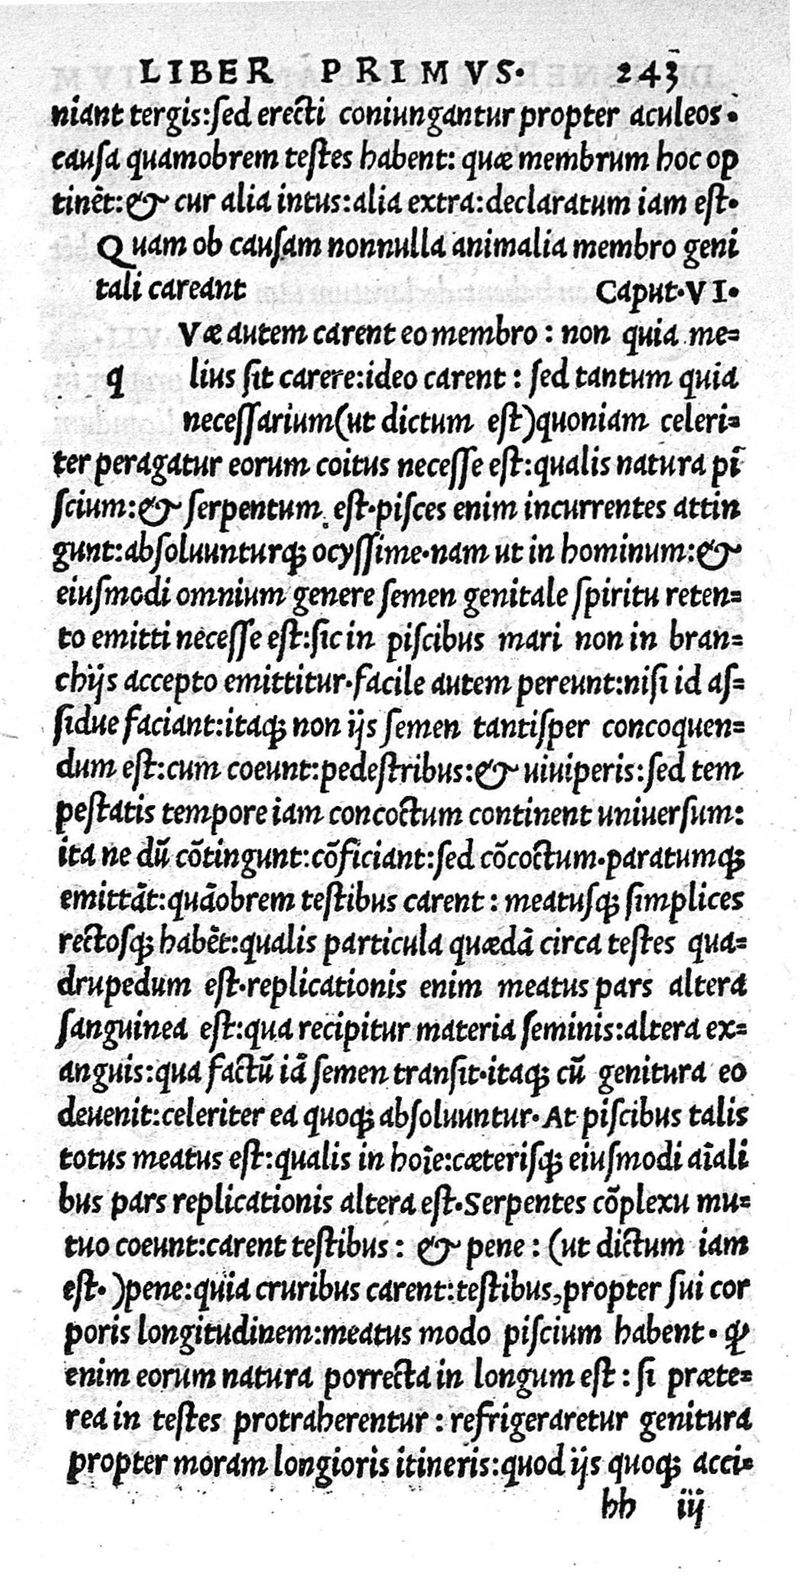 LIBER PRIMVS. 243
niant tergis:ſed erecti coniungantur propter aculeos.
cauſa quamobrem teſtes habent: quæ membrum hoc op
tinẽt:& cur alia intus:alia extra:declaratum iam eſt.
Quam ob cauſam nonnulla animalia membro geni
tali careant Caput.VI.
Væ autem carent eo membro: non quia me=
q lius ſit carere:ideo carent: ſed tantum quia
neceſſarium(ut dictum eſt)quoniam celeri=
ter peragatur eorum coitus neceſſe eſt:qualis natura pĩ
ſcium:& ſerpentum eſt.piſces enim incurrentes attin
gunt:abſoluunturqꝫ ocyſſime.nam ut in hominum:&
eiuſmodi omnium genere ſemen genitale ſpiritu reten=
to emitti neceſſe eſt:ſic in piſcibus mari non in bran=
chijs accepto emittitur.facile autem pereunt:niſi id aſ=
ſidue faciant:itaqꝫ non ijs ſemen tantiſper concoquen=
dum eſt:cum coeunt:pedeſtribus:& uiuiperis:ſed tem
peſtatis tempore iam concoctum continent uniuerſum:
ita ne dũ cõtingunt:cõficiant:ſed cõcoctum.paratumqꝫ
emittãt:quãobrem teſtibus carent: meatuſqꝫ ſimplices
rectoſqꝫ habẽt:qualis particula quædã circa teſtes qua=
drupedum eſt.replicationis enim meatus pars altera
ſanguinea eſt:qua recipitur materia ſeminis:altera ex=
anguis:qua factũ iã ſemen tranſit.itaqꝫ cũ genitura eo
deuenit:celeriter ea quoqꝫ abſoluuntur.At piſcibus talis
totus meatus eſt:qualis in hoĩe:cæteriſqꝫ eiuſmodi aĩali
bus pars replicationis altera eſt.Serpentes cõplexu mu=
tuo coeunt:carent teſtibus: & pene: (ut dictum iam
eſt.)pene:quia cruribus carent:teſtibus,propter ſui cor
poris longitudinem:meatus modo piſcium habent. ꝙ
enim eorum natura porrecta in longum eſt: ſi præte=
rea in teſtes protraherentur: refrigeraretur genitura
propter moram longioris itineris:quod ijs quoqꝫ acci=
hh iij